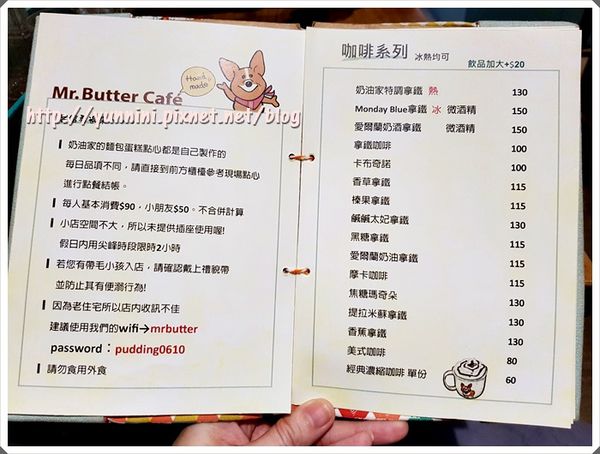 Hand made
Mr.Butter Café
http://yunnini.pixnet.net/blog
奶油家的麵包蛋糕點心都是自己製作的
每日品項不同，請直接到前方櫃檯參考現場點心
進行點餐結帳。
每人基本消費$90，小朋友$50。不合併計算
小店空間不大，所以未提供插座使用喔!
假日內用尖峰時段限時2小時
若您有帶毛小孩入店，請確認戴上禮貌帶
並防止其有便溺行為!
因為老住宅所以店內收訊不佳
建議使用我們的wifi→mrbutter
password：pudding0610
請勿食用外食
咖啡系列 冰熱均可
飲品加大+$20
奶油家特調拿鐵 熱 130
Monday Blue拿鐵 冰 微酒精 150
愛爾蘭奶酒拿鐵 微酒精 150
拿鐵咖啡 100
卡布奇諾 100
香草拿鐵 115
榛果拿鐵 115
鹹鹹太妃拿鐵 130
黑糖拿鐵 115
愛爾蘭奶油拿鐵 115
摩卡咖啡 115
焦糖瑪奇朵 130
提拉米蘇拿鐵 130
香蕉拿鐵 130
美式咖啡 80
經典濃縮咖啡 單份 60